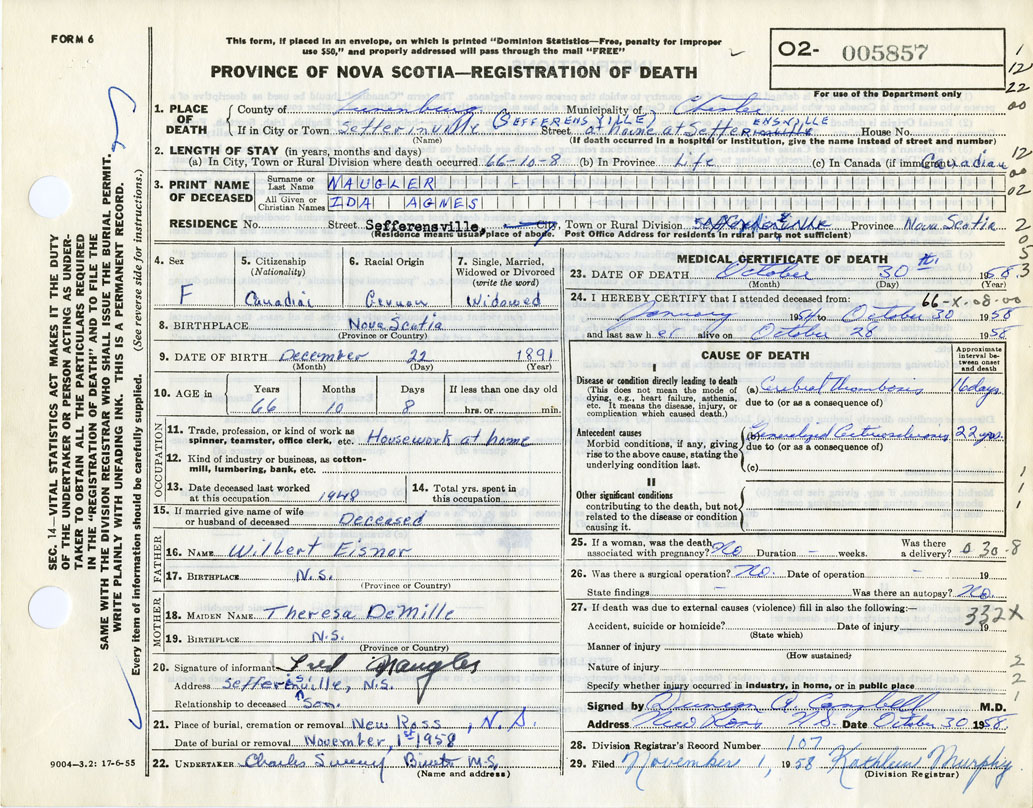 FORM 6
This form, if placed in an envelope, on which is printed "Dominion Statistics—Free, penalty for improper
use $50," and properly addressed will pass through the mail "FREE"
PROVINCE OF NOVA SCOTIA—REGISTRATION OF DEATH
02- 005857
For use of the Department only
1. PLACE OF DEATH
County of Lunenburg Municipality of Chester
If in City or Town Sefferinville (SEFFERENSVILLE) Street at home at Seffer ENSVILLE House No.
(Name) (If death occurred in a hospital or institution, give the name instead of street and number)
2. LENGTH OF STAY (in years, months and days)
(a) In City, Town or Rural Division where death occurred 66-10-8 (b) In Province Life (c) In Canada (if immigrant) Canadian
3. PRINT NAME OF DECEASED
Surname or Last Name NAUGLER
All Given or Christian Names IDA AGNES
RESIDENCE No. Street Sefferensville, City, Town or Rural Division Province Nova Scotia
(Residence means usual place of abode. Post Office Address for residents in rural parts not sufficient)
4. Sex F
5. Citizenship (Nationality) Canadian
6. Racial Origin German
7. Single, Married, Widowed or Divorced (write the word) Widowed
8. BIRTHPLACE Nova Scotia
(Province or Country)
9. DATE OF BIRTH December 22 1891
(Month) (Day) (Year)
10. AGE in Years 66 Months 10 Days 8 If less than one day old hrs. or min.
OCCUPATION
11. Trade, profession, or kind of work as
spinner, teamster, office clerk, etc. Housework at home
12. Kind of industry or business, as cotton-
mill, lumbering, bank, etc.
13. Date deceased last worked at this occupation 1948
14. Total yrs. spent in this occupation
15. If married give name of wife or husband of deceased Deceased
FATHER
16. NAME Wilbert Eisnor
17. BIRTHPLACE N.S.
(Province or Country)
MOTHER
18. MAIDEN NAME Theresa DeMille
19. BIRTHPLACE N.S.
(Province or Country)
20. Signature of informant Fred Naugler
Address Sefferinsville, N.S.
Relationship to deceased Son.
21. Place of burial, cremation or removal New Ross, N.S.
Date of burial or removal November, 1st 1958
22. UNDERTAKER Charles
(Name and address)
9004—3.2: 17-6-55
MEDICAL CERTIFICATE OF DEATH
23. DATE OF DEATH October 30th 1958
(Month) (Day) (Year)
66-X-08-00
24. I HEREBY CERTIFY that I attended deceased from:
January 195 to October 30 1958
and last saw her alive on October 28 1958
CAUSE OF DEATH
Approximate interval between onset and death
I
Disease or condition directly leading to death
(This does not mean the mode of
dying, e.g., heart failure, asthenia,
etc. It means the disease, injury, or
complication which caused death.)
(a) Cerebral thrombosis 16 days
due to (or as a consequence of)
Antecedent causes
Morbid conditions, if any, giving
rise to the above cause, stating the
underlying condition last.
(b) Generalized Arteriosclerosis 22 yrs.
due to (or as a consequence of)
(c)
II
Other significant conditions
contributing to the death, but not
related to the disease or condition
causing it.
25. If a woman, was the death associated with pregnancy? No Duration - weeks. Was there a delivery? 0 30-8
26. Was there a surgical operation? No. Date of operation - 19
State findings - Was there an autopsy? No.
27. If death was due to external causes (violence) fill in also the following:—
332X
Accident, suicide or homicide? Date of injury 19
(State which)
Manner of injury
(How sustained)
Nature of injury
Specify whether injury occurred in industry, in home, or in public place
Signed by Duncan A. Campbell M.D.
Address New Ross N.S. Date October 30 1958.
28. Division Registrar's Record Number 107
29. Filed November 1, 1958 Kathleen Murphy
(Division Registrar)
SEC. 14—VITAL STATISTICS ACT MAKES IT THE DUTY
OF THE UNDERTAKER OR PERSON ACTING AS UNDER-
TAKER TO OBTAIN ALL THE PARTICULARS REQUIRED
IN THE "REGISTRATION OF DEATH" AND TO FILE THE
SAME WITH THE DIVISION REGISTRAR WHO SHALL ISSUE THE BURIAL PERMIT.
WRITE PLAINLY WITH UNFADING INK. THIS IS A PERMANENT RECORD.
Every item of information should be carefully supplied. (See reverse side for instructions.)
1
12
22
00
12
00
02
2
0
5
3
1
1
1
2
2
1